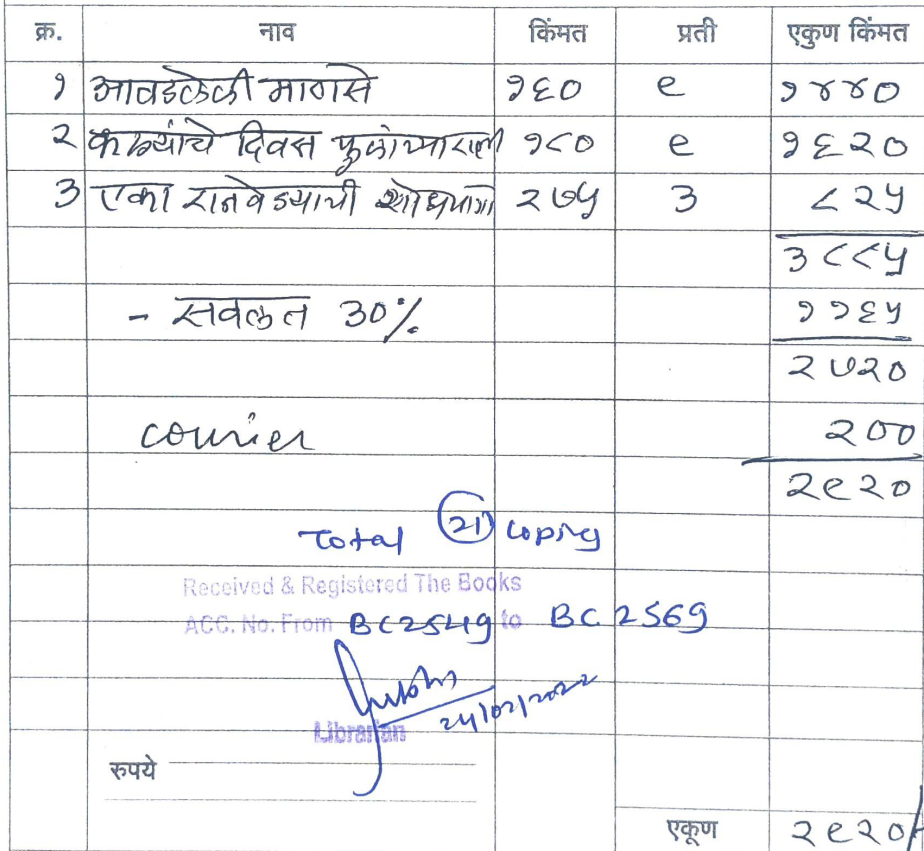 क्र. नाव किंमत प्रती एकुण किंमत
१ आवडलेली माणसे १६० ९ १४४०
२ कळ्यांचे दिवस फुलांच्या राती १८० ९ १६२०
3 एका रानवेड्याची शोधयात्रा २७५ 3 ८२५
3८८५
- सवलत 30%. ११६५
२७२०
courier २००
२९२०
Total 21 copies
Received & Registered The Books
ACC. No. From BC2549 to BC 2569
24/02/2022
Librarian
रुपये
एकूण २९२०/